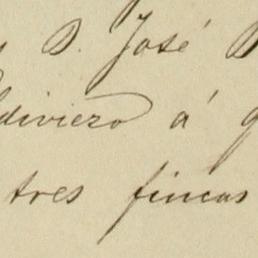 D. José
diviero á
tres fincas